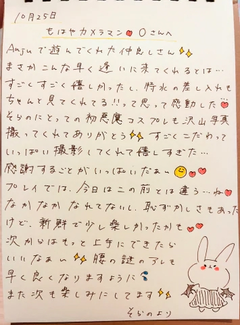 10月25日
もはやカメラマン Oさんへ
Anjuで遊んでくれた仲良しさん
まさかこんな早く逢いに来てくれるとは…
すごくすごく嬉しかったし、特水の差し入れも
ちゃんと見てくれてる!!って思って感動した
そらのにとっての初悪魔コスプレも沢山写真
撮ってくれてありがとう すごくこだわって
いっぱい撮影してくれて嬉しすぎた…
感謝することがいっぱいだぁ〜
プレイでは、今日はこの前とは違う…ね
なかなかなれてないし、恥ずかしさもあった
けど、新鮮で少し楽しかったかも
次からはもっと上手にできたら
いいなぁ〜 腰の謎のプレも
早く良くなりますように
また次も楽しみにしてます
そらのより